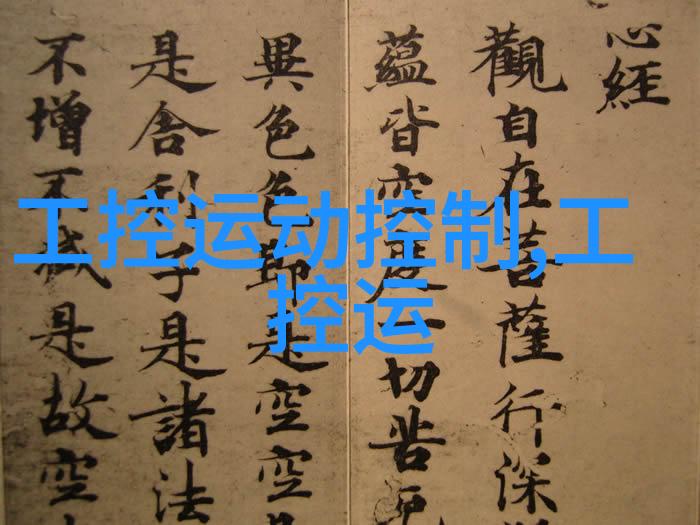 心經
觀自在菩薩行深
蘊皆空度一切苦厄
異色色即是空空
是舍利子是諸法
不增不減是故空
工控运动控制,工
控运